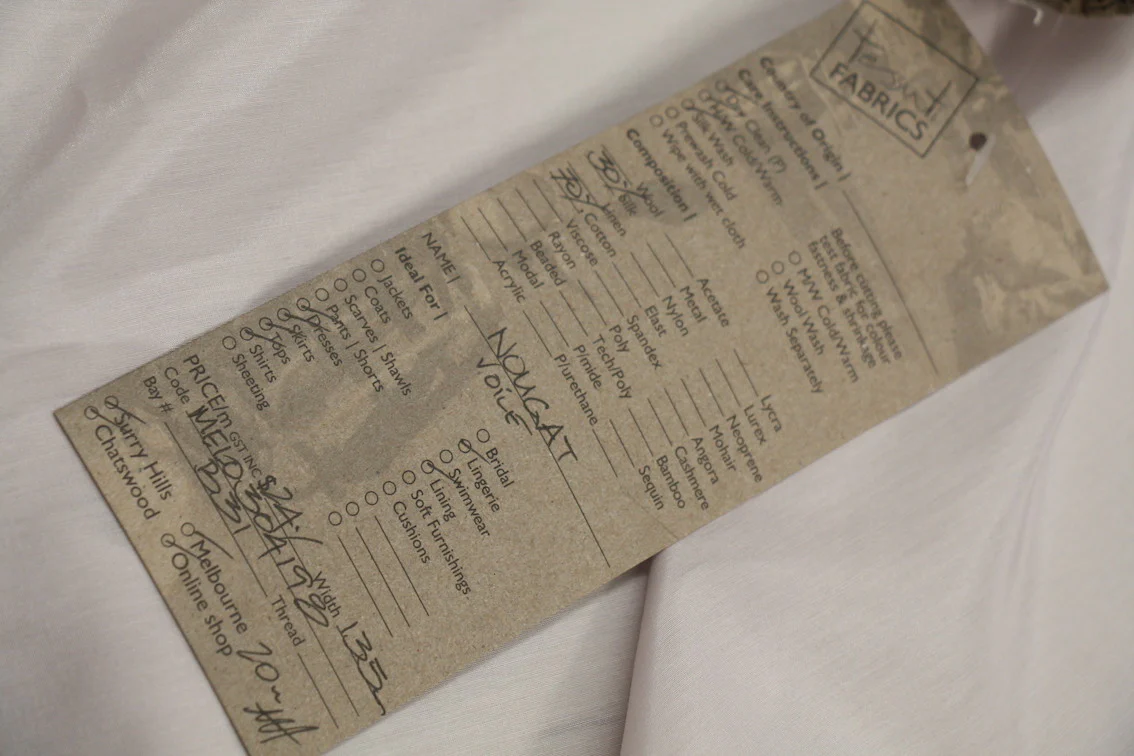 Tessuti
FABRICS
Country of Origin |
Care Instructions |
Dry Clean (P)
H/W Cold/Warm
Silk Wash
Prewash Cold
Wipe with wet cloth
Before cutting please
test fabric for colour
fastness & shrinkage
M/W Cold/Warm
Wool Wash
Wash Separately
Composition |
Wool
30% Silk
Linen
70% Cotton
Viscose
Rayon
Beaded
Modal
Acrylic
Acetate
Metal
Nylon
Elast
Spandex
Poly
Tech/Poly
P/mide
P/urethane
Lycra
Lurex
Neoprene
Mohair
Angora
Cashmere
Bamboo
Sequin
NAME | NOUGAT
VOILE
Ideal For |
Jackets
Coats
Scarves | Shawls
Pants | Shorts
Dresses
Skirts
Tops
Shirts
Sheeting
Bridal
Lingerie
Swimwear
Lining
Soft Furnishings
Cushions
PRICE/m GST INC $24/ Width 135
Code MELD304198 Thread
Bay # B31
Surry Hills
Chatswood
Melbourne 20m
Online shop